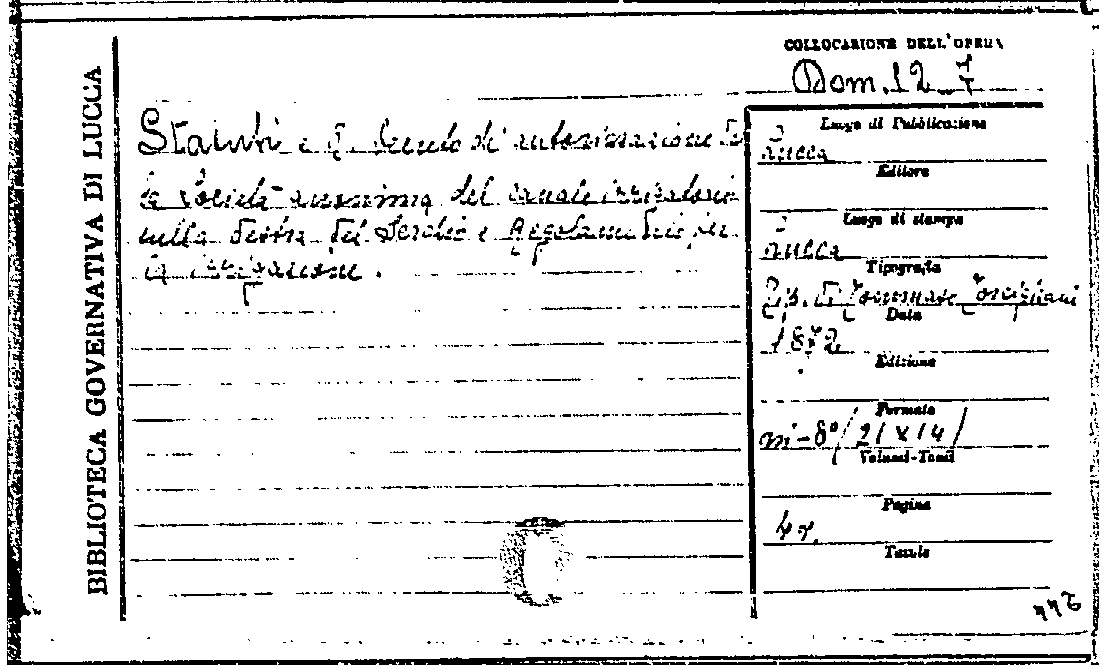 BIBLIOTECA GOVERNATIVA DI LUCCA
COLLOCAZIONE DELL'OPERA
Dom. 12. 7
Statuti e R. Decreto di autorizzazione del
la Società anonima del canale irrigatorio
sulla destra del Serchio e Regolamento per
la irrigazione.
Luogo di Pubblicazione
Lucca
Editore
Luogo di stampa
Lucca
Tipografia
Tip. di Tommaso Torcigliani
Data
1872
Edizione
Formato
in-8°/21X14/
Volumi-Tomi
Pagine
Tavole